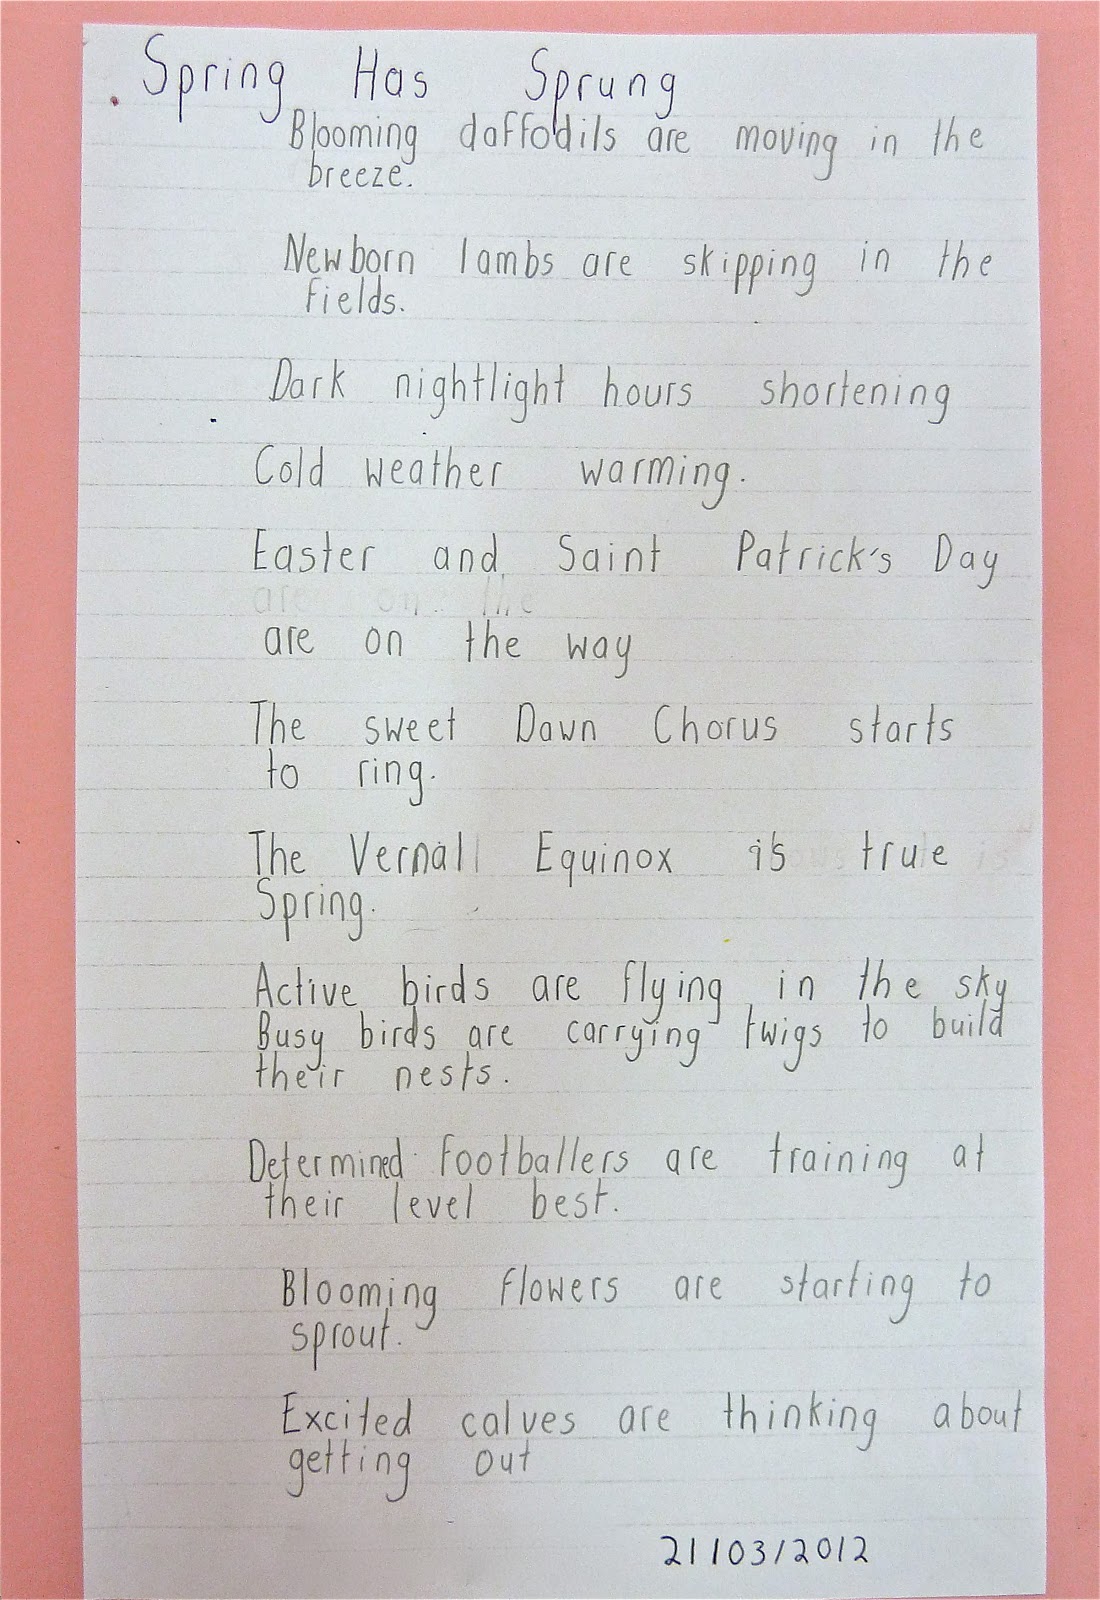 Spring Has Sprung
Blooming daffodils are moving in the
breeze.
Newborn lambs are skipping in the
fields.
Dark nightlight hours shortening
Cold weather warming.
Easter and Saint Patrick's Day
are on the
are on the way
The sweet Dawn Chorus starts
to ring.
The Vernall Equinox is true
Spring.
Active birds are flying in the sky
Busy birds are carrying twigs to build
their nests.
Determined footballers are training at
their level best.
Blooming flowers are starting to
sprout.
Excited calves are thinking about
getting out
21/03/2012